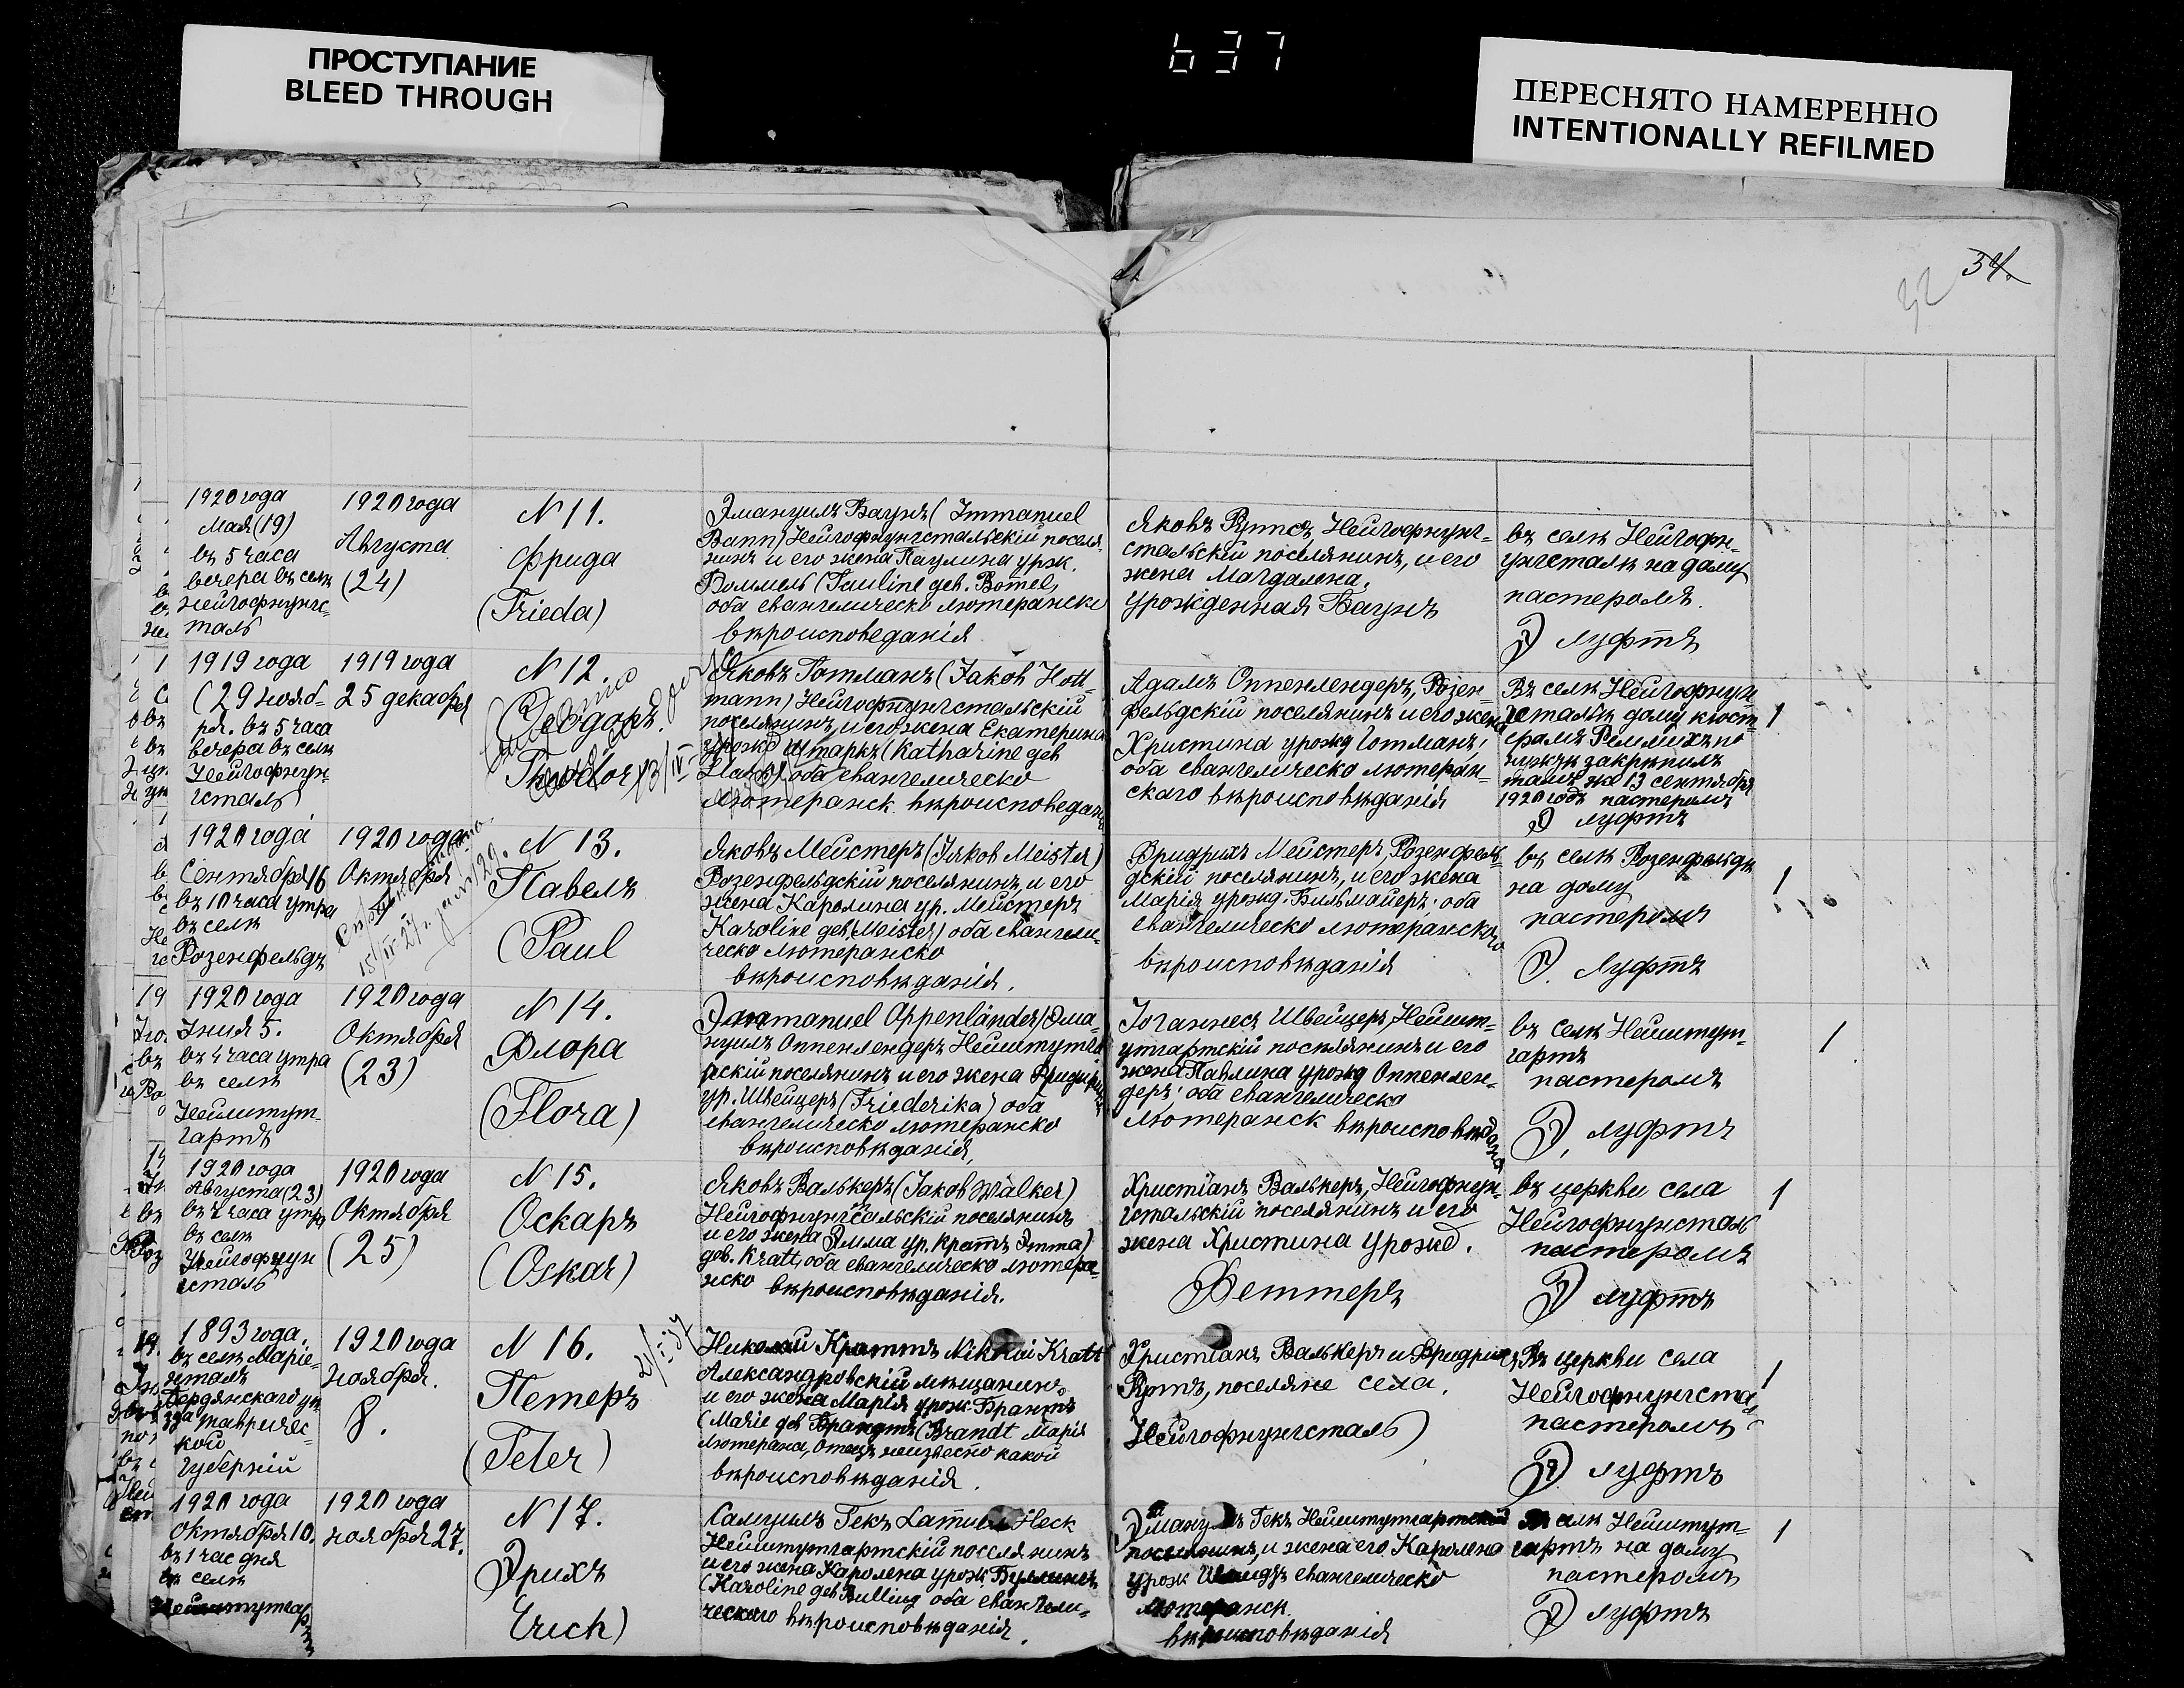 ПРОСТУПАНИЕ
BLEED THROUGH
637
ПЕРЕСНЯТО НАМЕРЕННО
INTENTIONALLY REFILMED
34.
32
1920 года
Мая (19)
въ 5 часа
вечера въ селѣ
Нейгофнунгс-
таль
1920 года
Августа
(24)
N 11.
Фрида
(Frieda)
Эмануилъ Баунъ (Immanuel
Baun) Нейгофнунгстальскій поселя-
нинъ и его жена Паулина урж.
Воммель (Pauline geb. Bomel,
оба евангелическо лютеранско
вѣроисповеданія
Яковъ Эрт, Нейгофнунг-
стальскій поселянинъ, и его
жена Магдалена,
урожденная Баунъ
въ селѣ Нейгофн-
унгсталь на дому
пасторомъ.
Э Луфтъ
1919 года
(29 нояб-
ря. въ 5 часа
вечера въ селѣ
Нейгофнун-
гсталь
1919 года
25 декабря
N 12.
Теодоръ
Theodor
Яковъ Готманъ (Jakob Hott-
mann) Нейгофнунгстальскій
поселянинъ, и его жена Екатерина
урожд Штаркъ (Katharine geb
Stark) оба евангелическо
лютеранск вѣроисповедан
Адамъ Оппенлендеръ, Розен-
фельдскій поселянинъ и его жена
Христина урожд Готманъ;
оба евангелическо лютеран-
скаго вѣроисповѣданія
Въ селѣ Нейгофнун-
гсталь дому кюст-
еромъ
закрѣпилъ
тамъ же 13 сентября
1920 годъ пасторомъ
Э Луфтъ
1
1920 года
Сентября 16
въ 10 часа утра
въ селѣ
Розенфельдъ
1920 года
Октября
15/IV 27
N 13.
Павелъ
(Paul
Яковъ Мейстеръ (Jakob Meister)
Розенфельдскій поселянинъ, и его
жена Каролина ур. Мейстеръ
Karoline geb. Meister) оба евангели-
ческо лютеранско
вѣроисповѣданія.
Фридрихъ Мейстеръ, Розенфель-
дскій поселянинъ, и его жена
Марія урожд. Бильмайеръ; оба
евангелическо лютеранского
вѣроисповѣданія
въ селѣ Розенфельдъ
на дому
пасторомъ
Э. Луфтъ
1
1920 года
Іюня 5.
въ 4 часа утра
въ селѣ
Нейштут-
гартъ
1920 года
Октября
(23)
N 14.
Флора
(Flora)
Immanuel Oppenländer, Эма-
нуилъ Оппенлендеръ Нейштутга
рскій поселянинъ и его жена Фридерика
ур. Швейцеръ (Friederika) оба
евангелическо лютеранско
вѣроисповѣданія,
Іоганнесъ Швейцеръ, Нейшт-
утгартскій поселянинъ и его
жена Павлина урожд Оппенлен-
деръ; оба евангелическо
лютеранск вѣроисповѣдан
въ селѣ Нейштут-
гартъ
пасторомъ
Э, Луфтъ
1
1920 года
Августа (23)
въ часа утра
въ селѣ
Нейгофнун
гсталь
1920 года
Октября
(25)
N 15.
Оскаръ
(Oskar)
Яковъ Валькеръ (Jakob Wälker)
Нейгофнунгстальскій поселянинъ
и его жена Эмма ур. Краттъ Emma)
geb. Kratt, оба евангелическо лютера-
нско вѣроисповѣданія.
Христіанъ Валькеръ, Нейгофнун-
гстальскій поселянинъ и его
жена Христина урожд.
Феттеръ
въ церкви села
Нейгофнунгсталь
пасторомъ
Э Луфтъ
1
1893 года,
въ селѣ Маріе-
нталь
Бердянскаго уѣ
зда Тавричес-
кой
Губерніи
1920 года
ноября.
8.
N 16.
Петеръ
(Peter)
Николай Краттъ Nikolai Kratt
Александровскій мещанинъ
и его жена Марія урож Брантъ
(Marie geb Брандтъ (Brandt Марія
лютеранка, отецъ неизвестно какой
вѣроисповѣданія.
Христіанъ Валькеръ и Фридрихъ
Эртъ, поселяне села,
Нейгофнунгсталь)
Въ церкви села
Нейгофнунгста
пасторомъ
Э Луфтъ
1
1920 года
Октября 10.
въ 1 час дня
въ селѣ
Нейштутгартъ
1920 года
ноября 27.
N 17.
Эрихъ
Erich)
Самуилъ Гекъ Samuel Heck
Нейштутгартскій поселянинъ
и его жена Каролена урож. Буллингъ
(Karoline geb Bulling оба евангели-
ческаго вѣроисповѣданія.
Эмануилъ Гекъ Нейштутгартскій
поселянинъ, и жена его Каролена
урож евангелическо
лютеранск.
вѣроисповѣданія
Въ селѣ Нейштут-
гартъ на дому
пасторомъ
Э Луфтъ
1